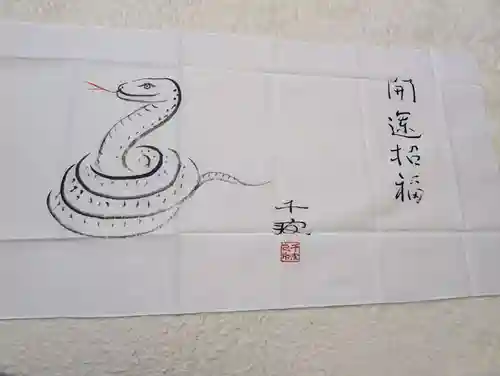 開運招福
千